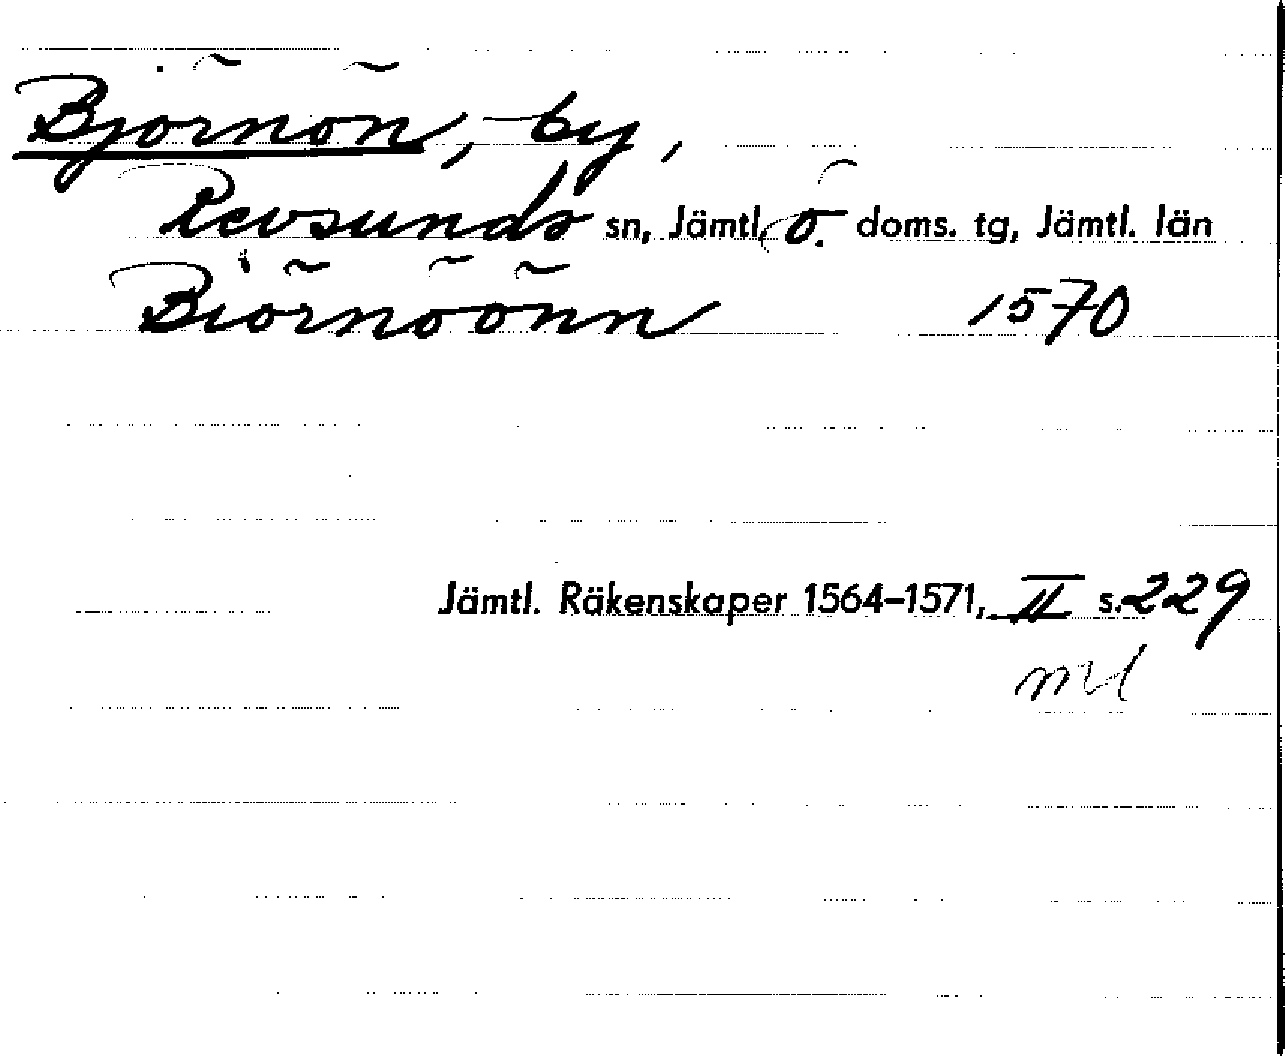 Björnön, by,
Revsunds sn, Jämtl. ö. doms. tg, Jämtl. län
Biörnöönn 1570
Jämtl. Räkenskaper 1564–1571, II s. 229